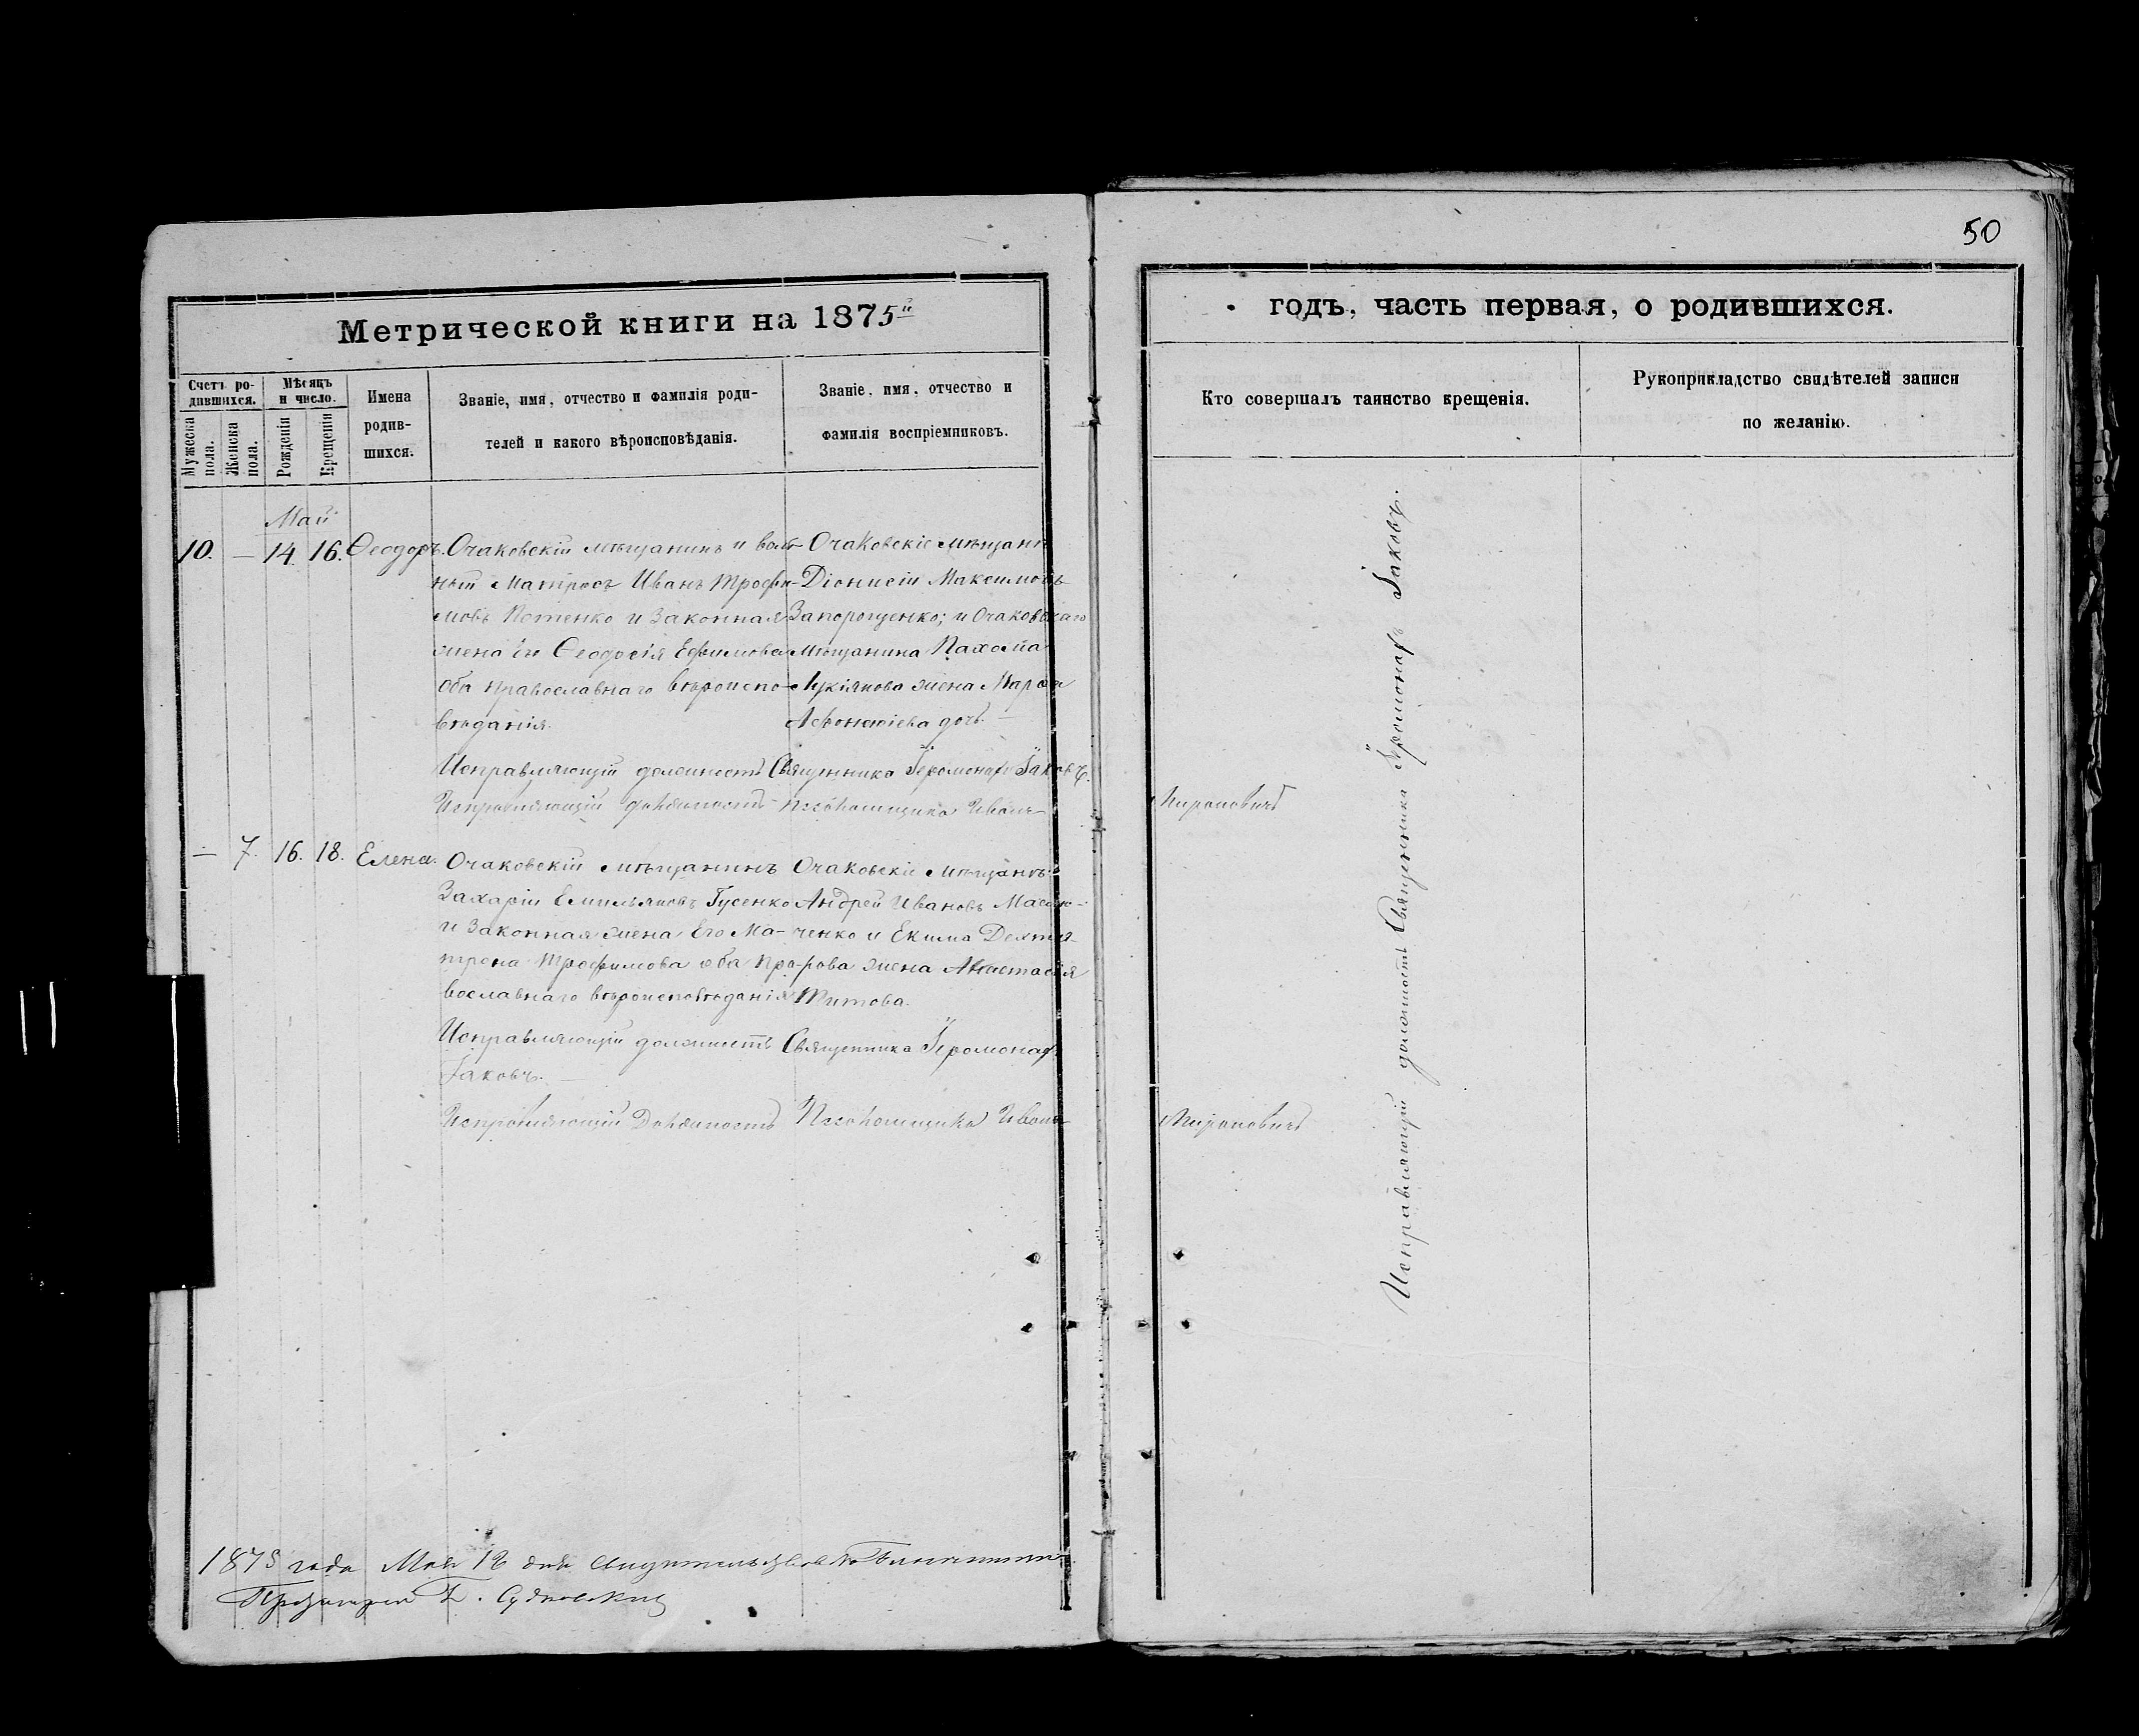 50
Метрической книги на 1875й
годъ, часть первая, о родившихся.
Счетъ ро-
дившихся.
Мѣсяцъ
и число.
Мужеска
пола.
Женска
пола.
Рожденія
Крещенія
Имена
родив-
шихся.
Званіе, имя, отчество и фамилія роди-
телей и какого вѣроисповѣданія.
Званіе, имя, отчество и
фамилія воспріемниковъ.
Кто совершалъ таинство крещенія.
Рукоприкладство свидѣтелей записи
по желанію.
Май
10. — 14. 16. Ѳеодоръ.
Очаковскій мѣщанинъ и воль-
ный матросъ Иванъ Трофи-
мовъ Потенко и законная
жена его Ѳеодосія Ефимова
оба православнаго вѣроиспо-
вѣданія.
Очаковскіе мѣщане
Діонисій Максимовъ
Запорощенко; и Очаковскаго
мѣщанина Пахома
Лукіянова жена Марѳа
дочь. —
Исправляющій должность Священника Іеромонахъ Іаковъ.
Исправляющій должность Псаломщика Иванъ
Мироновичъ
— 7. 16. 18. Елена.
Очаковскій мѣщанинъ
Захарій Емильяновъ Гусенко
и законная жена его Ма-
трона Трофимова оба пра-
вославнаго вѣроисповѣданія
Очаковскіе мѣщане:
Андрей Ивановъ
ченко и Екима Дехтя-
рова жена Анастасія
Титова.
Исправляющій должность Священника Іеромонахъ
Іаковъ. —
Исправляющій Должность Псаломщика Иванъ
Мироновичъ
Исправляющій должность Священника Іеромонахъ Іаковъ.
1875 года Мая 18 дня